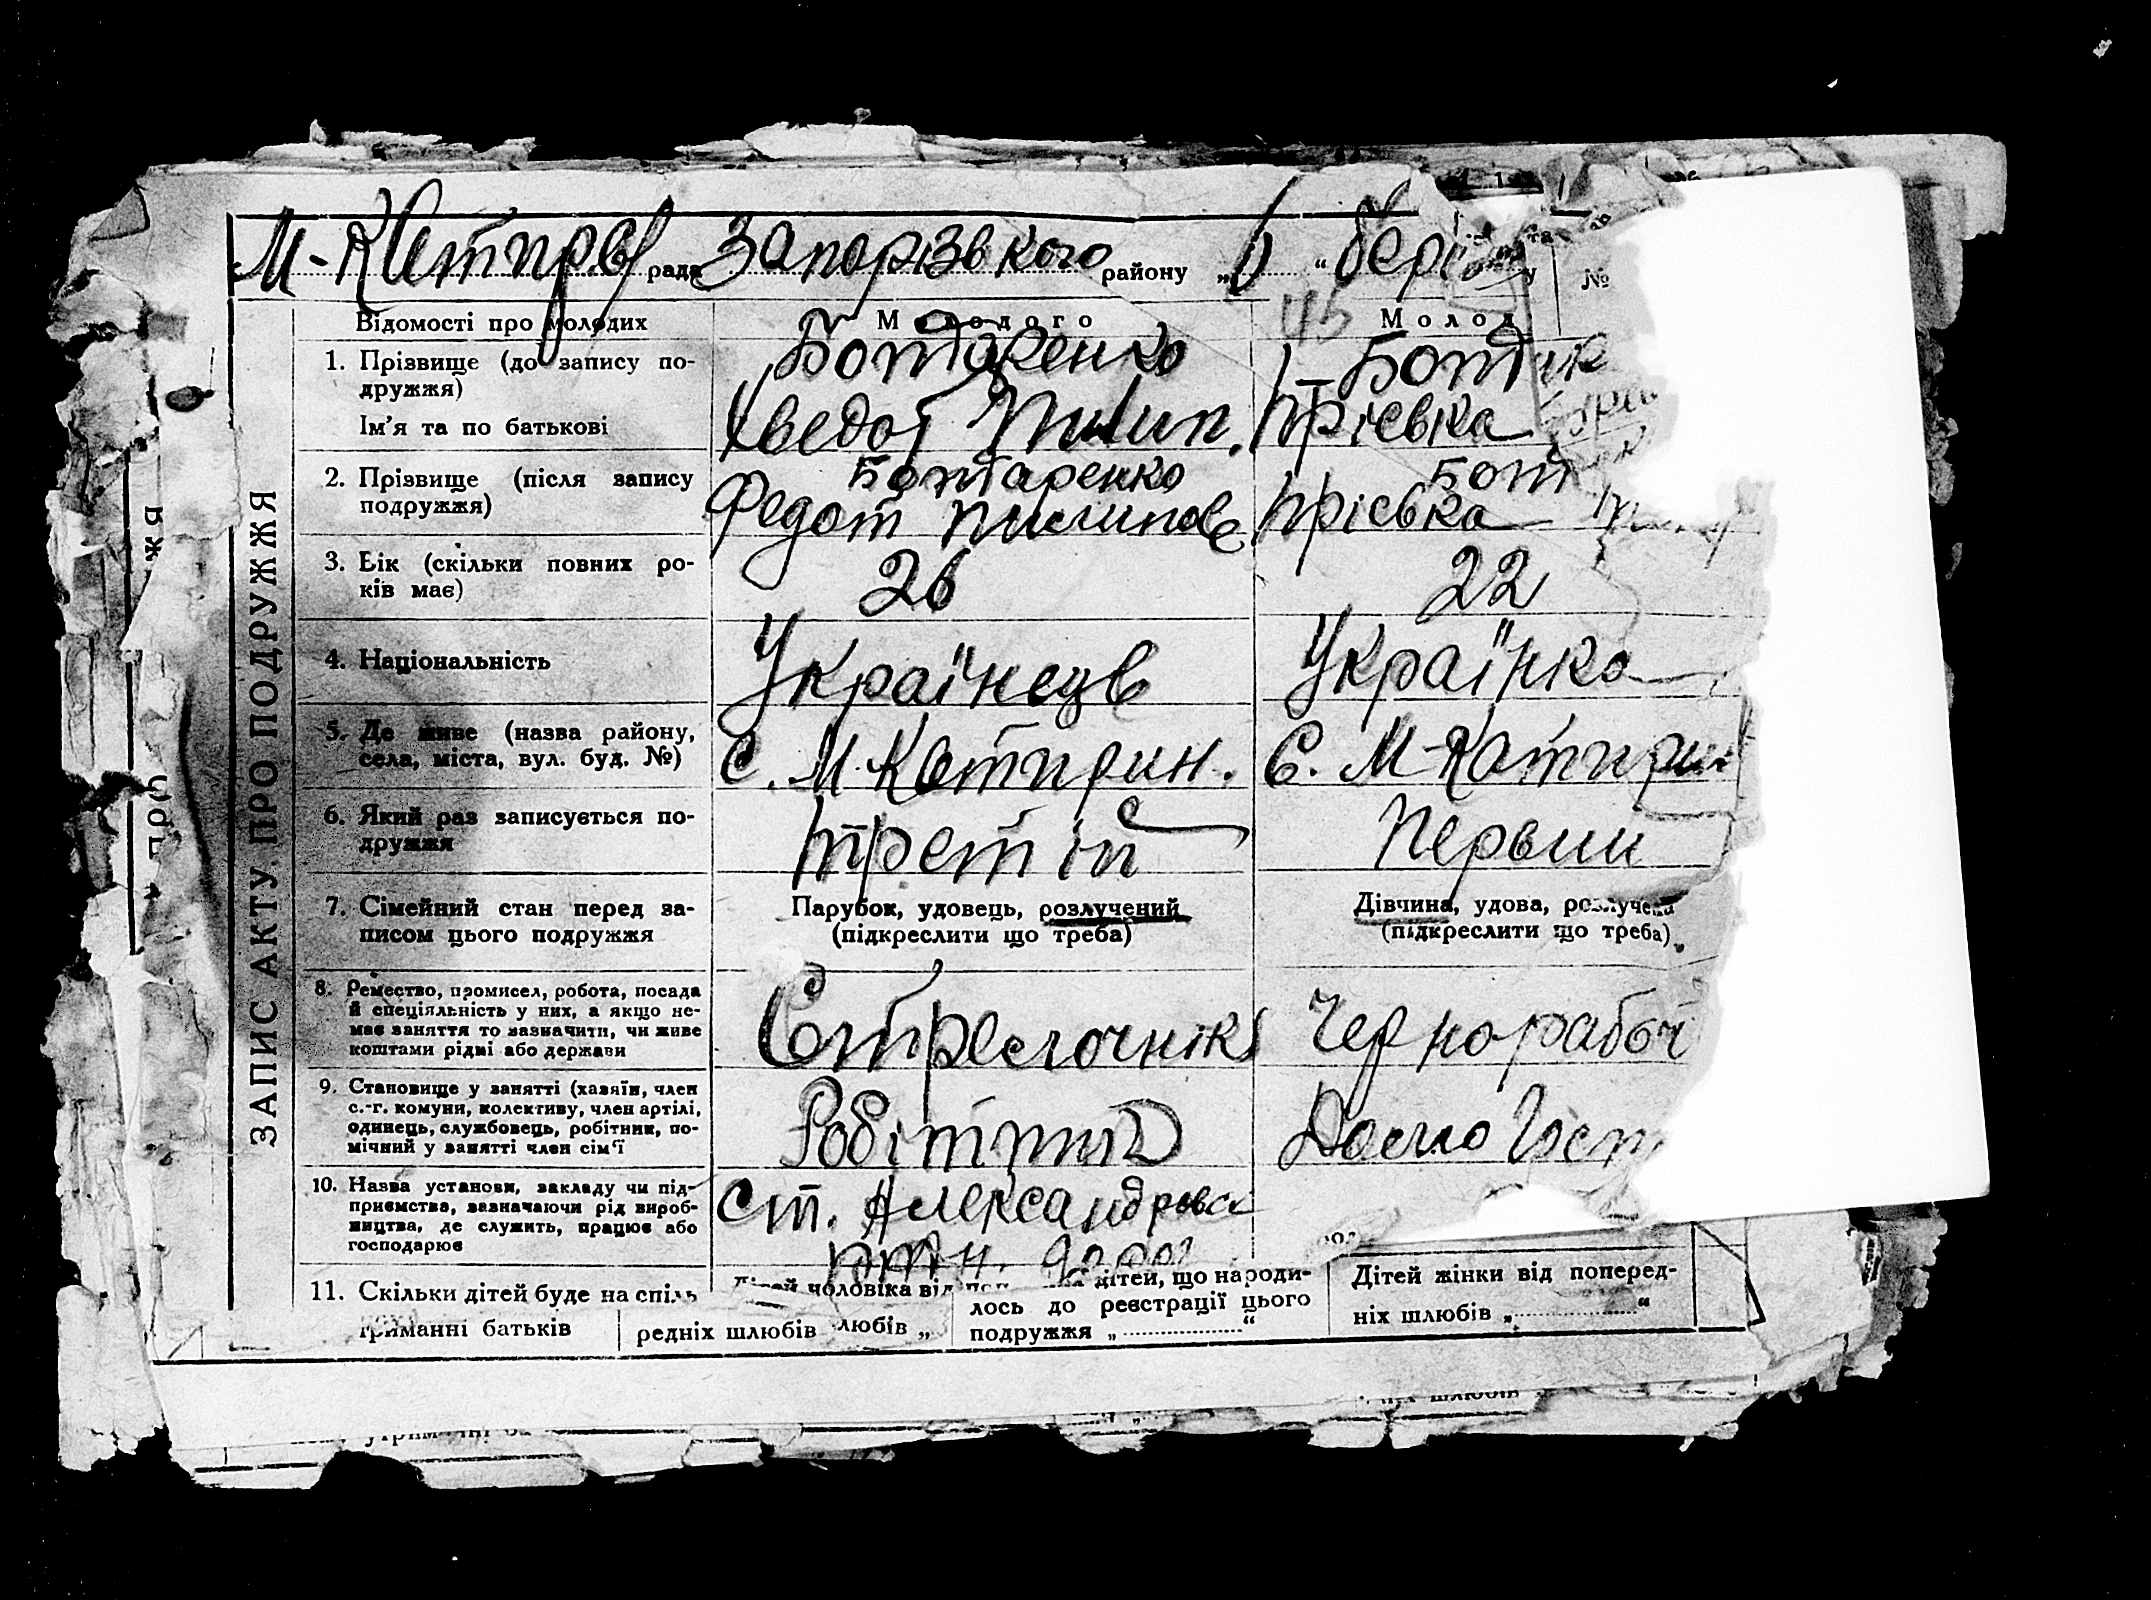 М-Катирів рада Запорізького району „6“ бер
№
45
Відомості про молодих
Молодого
Молод
1. Прізвище (до запису по-
дружжя)
Ботаренко
Бот
Ім'я та по батькові
Хведот Пилип.
Прісвка
2. Прізвище (після запису
подружжя)
Ботаренко
Бот
Федот Пилипов
Прісвка
3. Вік (скільки повних ро-
ків має)
26
22
4. Національність
Українець
Українка
5. Де живе (назва району,
села, міста, вул. буд. №)
с. М-Катирин.
с. М-Катирин
6. Який раз записується по-
дружжя
третій
Первии
7. Сімейний стан перед за-
писом цього подружжя
Парубок, удовець, розлучений
(підкреслити що треба)
Дівчина, удова, розлучена
(підкреслити що треба)
8. Ремество, промисел, робота, посада
й спеціяльність у них, а якщо не-
має заняття то зазначити, чи живе
коштами рідні або держави
Стрелочнік
Чернорабоч
9. Становище у занятті (хазяїн, член
с.-г. комуни, колективу, член артілі,
одинець, службовець, робітник, по-
мічний у занятті член сім'ї
Робітник
Домо Госп
10. Назва установи, закладу чи під-
приємства, зазначаючи рід вироб-
ництва, де служить, працює або
господарює
ст. Александровск
11. Скільки дітей буде на спіль
триманні батьків
чоловіка від
редніх шлюбів
любів „
дітей, що народи-
лось до реєстрації цього
подружжя „ “
Дітей жінки від поперед-
ніх шлюбів „ “
ЗАПИС АКТУ ПРО ПОДРУЖЖЯ